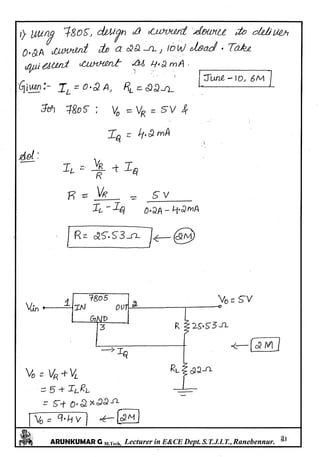 1) using 7805, design a current source to deliver
0.2A current to a 22Ω, 10W load. Take
quiescent current as 4.2mA.
June-10, 6M
Given:- IL = 0.2A, RL = 22Ω
For 7805 : Vo = VR = 5V &
IQ = 4.2mA
Sol:
IL = VR/R + IQ
R = VR/(IL - IQ) = 5V/(0.2A - 4.2mA)
R = 25.53Ω ← 2M
7805
Vin 1 IN OUT 2 Vo = 5V
GND
3
R 25.53Ω
→ IQ ← 2M
RL 22Ω
Vo = VR + VL
= 5 + ILRL
= 5 + 0.2 × 22Ω
Vo = 9.4V ← 2M
ARUNKUMAR G M.Tech, Lecturer in E&CE Dept. S.T.J.I.T., Ranebennur.